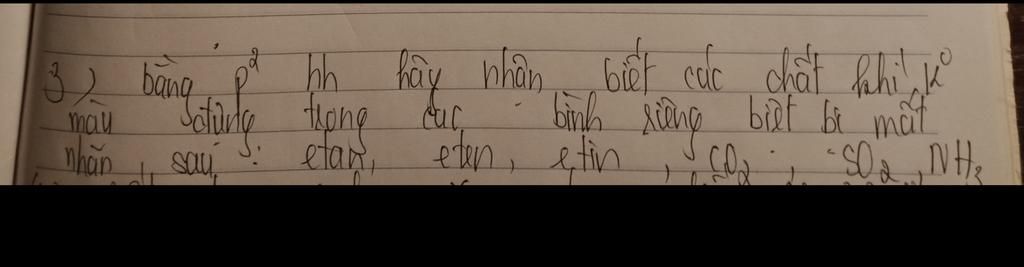 3) bằng p² hh hãy nhận biết các chất khí K⁰
màu đựng trong các bình riêng biệt bị mất
nhãn sau: etan, eten, etin, CO₂, SO₂, NH₃